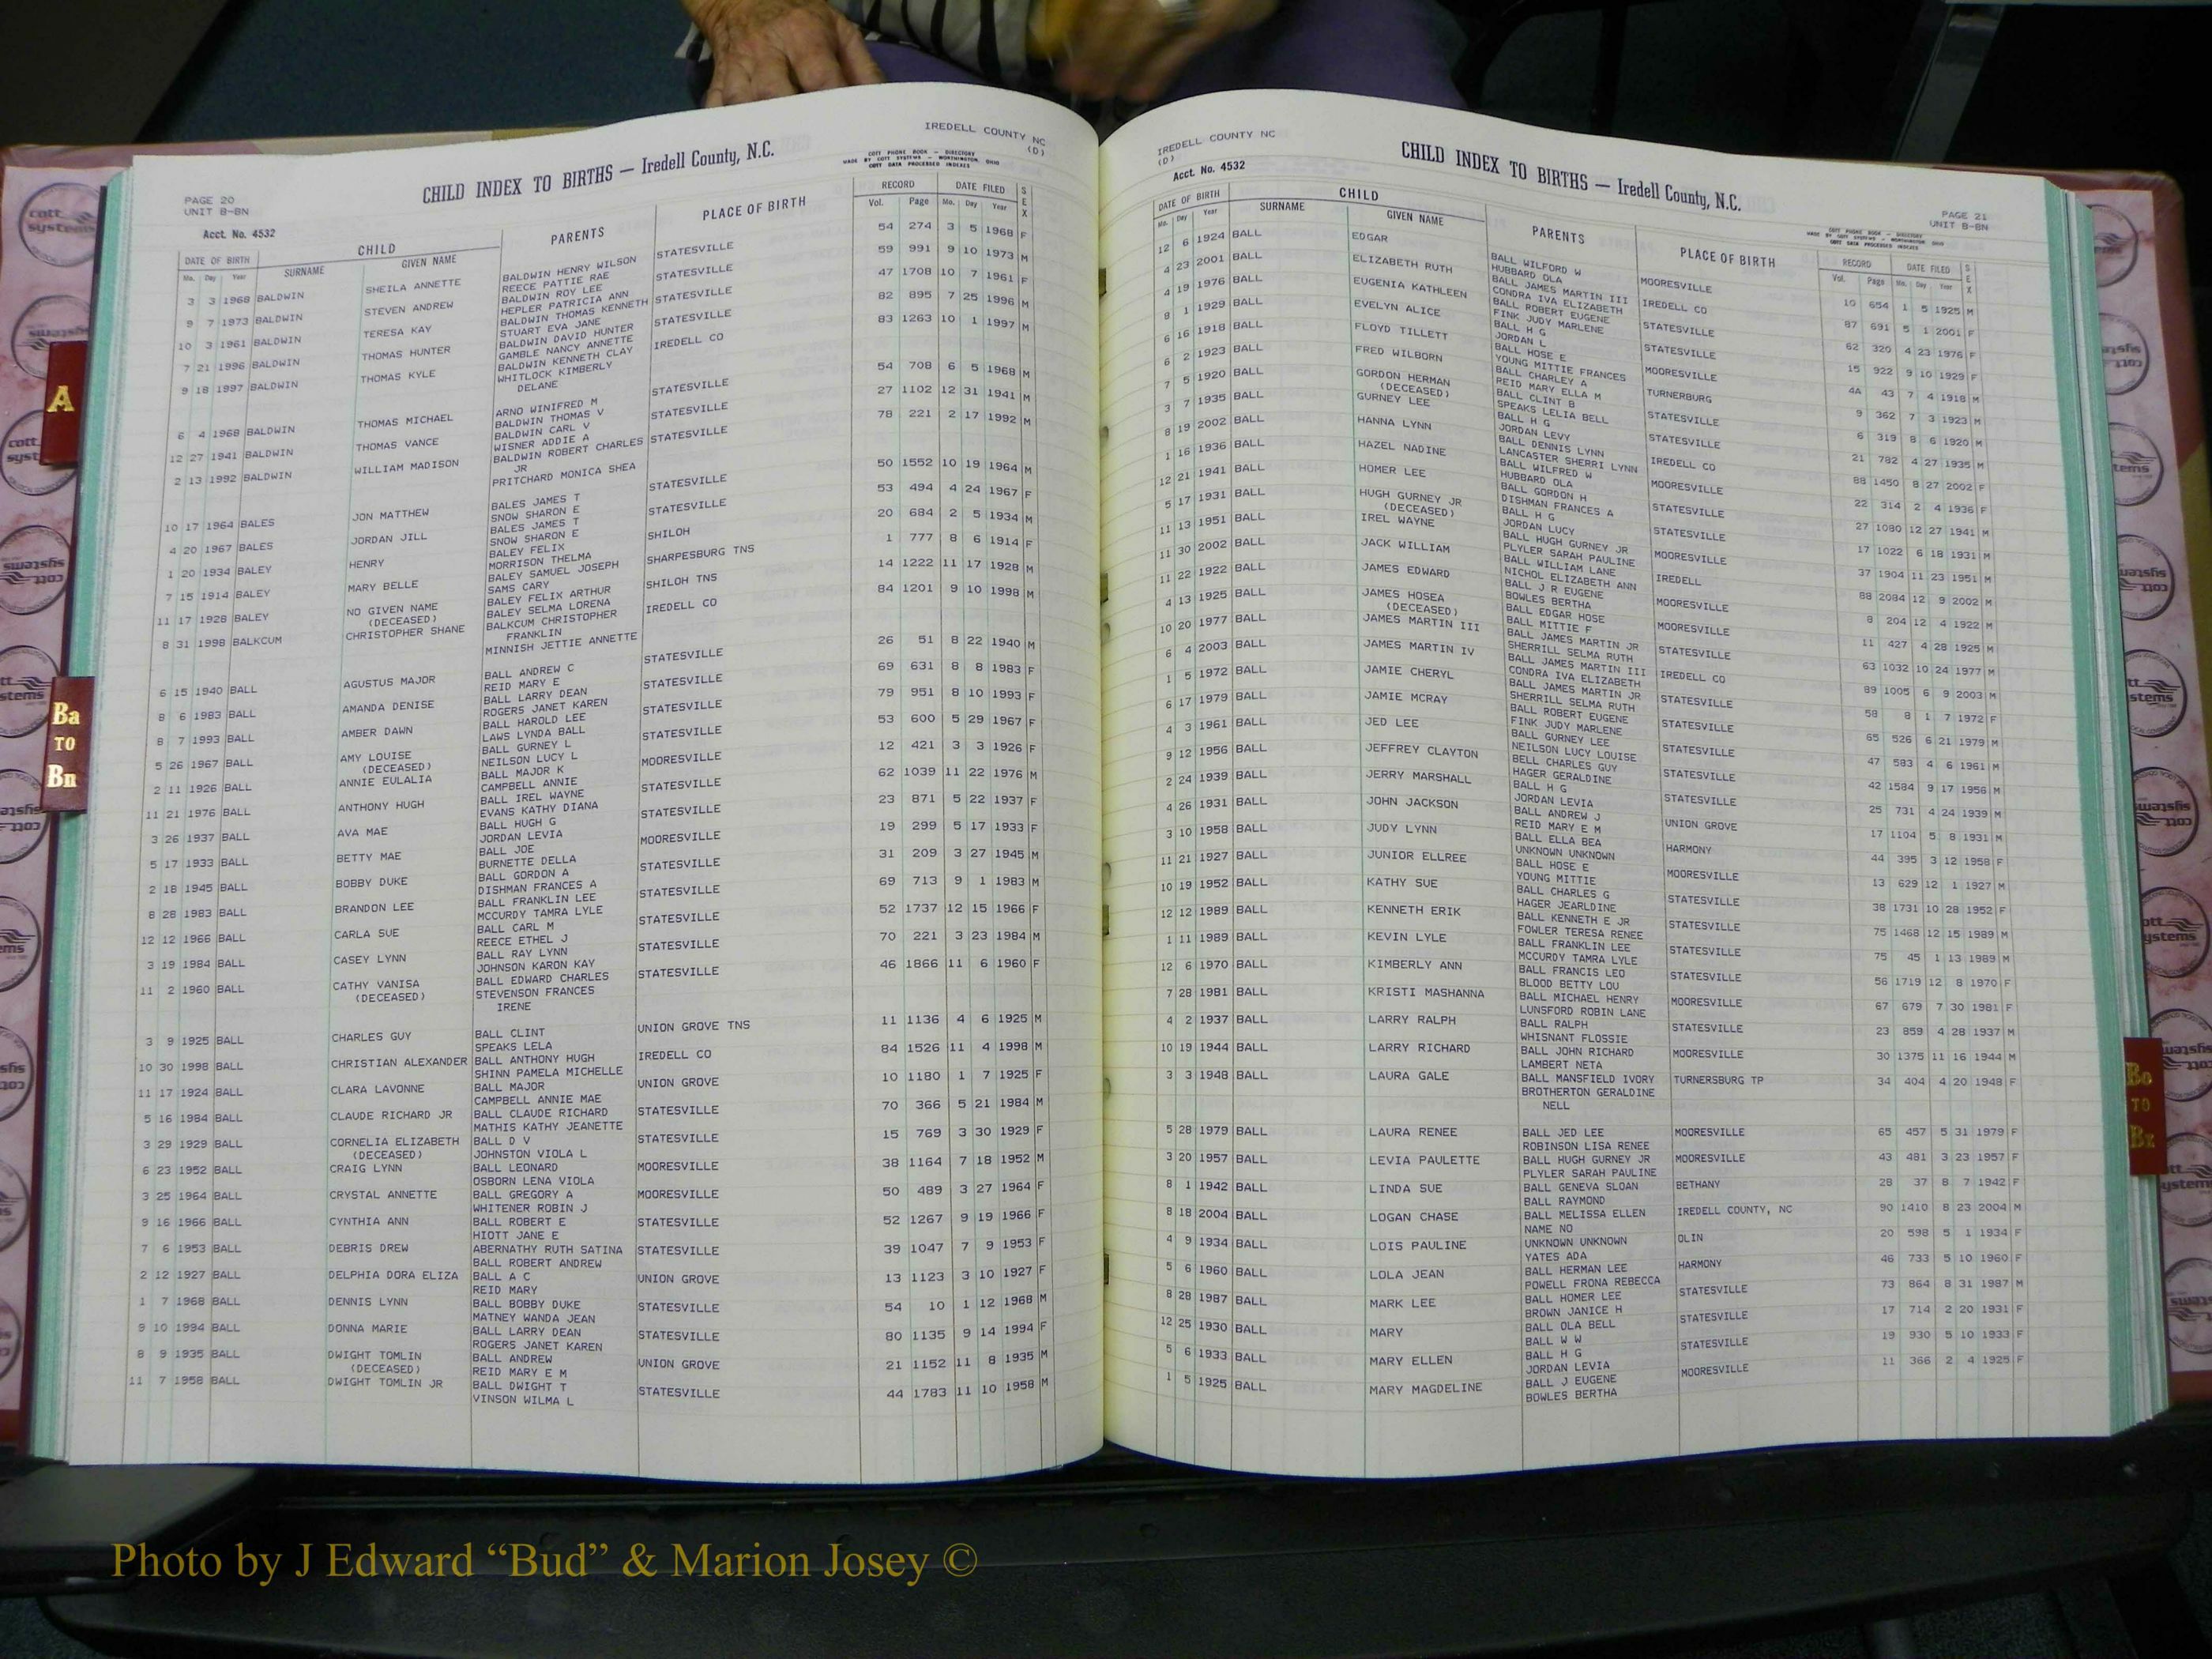 IREDELL COUNTY NC
(D)
CHILD INDEX TO BIRTHS — Iredell County, N.C.
COTT PHONE BOOK — DIRECTORY
MADE BY COTT SYSTEMS — WORTHINGTON, OHIO
COTT DATA PROCESSED INDEXES
PAGE 20
UNIT B-BN
Acct. No. 4532
DATE OF BIRTH CHILD PARENTS PLACE OF BIRTH RECORD DATE FILED SEX
Mo. Day Year SURNAME GIVEN NAME Vol. Page Mo. Day Year
3 3 1968 BALDWIN SHEILA ANNETTE BALDWIN HENRY WILSON STATESVILLE 54 274 3 5 1968 F
REECE PATTIE RAE
9 7 1973 BALDWIN STEVEN ANDREW BALDWIN ROY LEE STATESVILLE 59 991 9 10 1973 M
HEPLER PATRICIA ANN
10 3 1961 BALDWIN TERESA KAY BALDWIN THOMAS KENNETH STATESVILLE 47 1708 10 7 1961 F
STUART EVA JANE
7 21 1996 BALDWIN THOMAS HUNTER BALDWIN DAVID HUNTER STATESVILLE 82 895 7 25 1996 M
GAMBLE NANCY ANNETTE
9 18 1997 BALDWIN THOMAS KYLE BALDWIN KENNETH CLAY IREDELL CO 83 1263 10 1 1997 M
WHITLOCK KIMBERLY
DELANE
6 4 1968 BALDWIN THOMAS MICHAEL ARNO WINIFRED M STATESVILLE 54 708 6 5 1968 M
BALDWIN THOMAS V
12 27 1941 BALDWIN THOMAS VANCE BALDWIN CARL V STATESVILLE 27 1102 12 31 1941 M
WISNER ADDIE A
2 13 1992 BALDWIN WILLIAM MADISON BALDWIN ROBERT CHARLES STATESVILLE 78 221 2 17 1992 M
JR
PRITCHARD MONICA SHEA
10 17 1964 BALES JON MATTHEW BALES JAMES T STATESVILLE 50 1552 10 19 1964 M
SNOW SHARON E
4 20 1967 BALES JORDAN JILL BALES JAMES T STATESVILLE 53 494 4 24 1967 F
SNOW SHARON E
1 20 1934 BALEY HENRY BALEY FELIX SHILOH 20 684 2 5 1934 M
MORRISON THELMA
7 15 1914 BALEY MARY BELLE BALEY SAMUEL JOSEPH SHARPESBURG TNS 1 777 8 6 1914 F
SAMS CARY
11 17 1928 BALEY NO GIVEN NAME BALEY FELIX ARTHUR SHILOH TNS 14 1222 11 17 1928 M
(DECEASED) BALEY SELMA LORENA
8 31 1998 BALKCUM CHRISTOPHER SHANE BALKCUM CHRISTOPHER IREDELL CO 84 1201 9 10 1998 M
FRANKLIN
MINNISH JETTIE ANNETTE
6 15 1940 BALL AGUSTUS MAJOR BALL ANDREW C STATESVILLE 26 51 8 22 1940 M
REID MARY E
8 6 1983 BALL AMANDA DENISE BALL LARRY DEAN STATESVILLE 69 631 8 8 1983 F
ROGERS JANET KAREN
8 7 1993 BALL AMBER DAWN BALL HAROLD LEE STATESVILLE 79 951 8 10 1993 F
LAWS LYNDA BALL
5 26 1967 BALL AMY LOUISE BALL GURNEY L STATESVILLE 53 600 5 29 1967 F
(DECEASED) NEILSON LUCY L
2 11 1926 BALL ANNIE EULALIA BALL MAJOR K MOORESVILLE 12 421 3 3 1926 F
CAMPBELL ANNIE
11 21 1976 BALL ANTHONY HUGH BALL IREL WAYNE STATESVILLE 62 1039 11 22 1976 M
EVANS KATHY DIANA
3 26 1937 BALL AVA MAE BALL HUGH G STATESVILLE 23 871 5 22 1937 F
JORDAN LEVIA
5 17 1933 BALL BETTY MAE BALL JOE MOORESVILLE 19 299 5 17 1933 F
BURNETTE DELLA
2 18 1945 BALL BOBBY DUKE BALL GORDON A STATESVILLE 31 209 3 27 1945 M
DISHMAN FRANCES A
8 28 1983 BALL BRANDON LEE BALL FRANKLIN LEE STATESVILLE 69 713 9 1 1983 M
MCCURDY TAMRA LYLE
12 12 1966 BALL CARLA SUE BALL CARL M STATESVILLE 52 1737 12 15 1966 F
REECE ETHEL J
3 19 1984 BALL CASEY LYNN BALL RAY LYNN STATESVILLE 70 221 3 23 1984 M
JOHNSON KARON KAY
11 2 1960 BALL CATHY VANISA BALL EDWARD CHARLES STATESVILLE 46 1866 11 6 1960 F
(DECEASED) STEVENSON FRANCES
IRENE
3 9 1925 BALL CHARLES GUY BALL CLINT UNION GROVE TNS 11 1136 4 6 1925 M
SPEAKS LELA
10 30 1998 BALL CHRISTIAN ALEXANDER BALL ANTHONY HUGH IREDELL CO 84 1526 11 4 1998 M
SHINN PAMELA MICHELLE
11 17 1924 BALL CLARA LAVONNE BALL MAJOR UNION GROVE 10 1180 1 7 1925 F
CAMPBELL ANNIE MAE
5 16 1984 BALL CLAUDE RICHARD JR BALL CLAUDE RICHARD STATESVILLE 70 366 5 21 1984 M
MATHIS KATHY JEANETTE
3 29 1929 BALL CORNELIA ELIZABETH BALL D V STATESVILLE 15 769 3 30 1929 F
(DECEASED) JOHNSTON VIOLA L
6 23 1952 BALL CRAIG LYNN BALL LEONARD MOORESVILLE 38 1164 7 18 1952 M
OSBORN LENA VIOLA
3 25 1964 BALL CRYSTAL ANNETTE BALL GREGORY A MOORESVILLE 50 489 3 27 1964 F
WHITENER ROBIN J
9 16 1966 BALL CYNTHIA ANN BALL ROBERT E STATESVILLE 52 1267 9 19 1966 F
HIOTT JANE E
7 6 1953 BALL DEBRIS DREW ABERNATHY RUTH SATINA STATESVILLE 39 1047 7 9 1953 F
BALL ROBERT ANDREW
2 12 1927 BALL DELPHIA DORA ELIZA BALL A C UNION GROVE 13 1123 3 10 1927 F
REID MARY
1 7 1968 BALL DENNIS LYNN BALL BOBBY DUKE STATESVILLE 54 10 1 12 1968 M
MATNEY WANDA JEAN
9 10 1994 BALL DONNA MARIE BALL LARRY DEAN STATESVILLE 80 1135 9 14 1994 F
ROGERS JANET KAREN
8 9 1935 BALL DWIGHT TOMLIN BALL ANDREW UNION GROVE 21 1152 11 8 1935 M
(DECEASED) REID MARY E M
11 7 1958 BALL DWIGHT TOMLIN JR BALL DWIGHT T STATESVILLE 44 1783 11 10 1958 M
VINSON WILMA L
IREDELL COUNTY NC
(D)
Acct. No. 4532
CHILD INDEX TO BIRTHS — Iredell County, N.C.
PAGE 21
UNIT B-BN
COTT PHONE BOOK — DIRECTORY
MADE BY COTT SYSTEMS — WORTHINGTON, OHIO
COTT DATA PROCESSED INDEXES
DATE OF BIRTH CHILD PARENTS PLACE OF BIRTH RECORD DATE FILED SEX
Mo. Day Year SURNAME GIVEN NAME Vol. Page Mo. Day Year
12 6 1924 BALL EDGAR BALL WILFORD W MOORESVILLE 10 654 1 5 1925 M
HUBBARD OLA
4 23 2001 BALL ELIZABETH RUTH BALL JAMES MARTIN III IREDELL CO 87 691 5 1 2001 F
CONDRA IVA ELIZABETH
4 19 1976 BALL EUGENIA KATHLEEN BALL ROBERT EUGENE STATESVILLE 62 320 4 23 1976 F
FINK JUDY MARLENE
8 1 1929 BALL EVELYN ALICE BALL H G STATESVILLE 15 922 9 10 1929 F
JORDAN L
6 16 1918 BALL FLOYD TILLETT BALL HOSE E MOORESVILLE 4A 43 7 4 1918 M
YOUNG MITTIE FRANCES
6 2 1923 BALL FRED WILBORN BALL CHARLEY A TURNERBURG 9 362 7 3 1923 M
REID MARY ELLA M
7 5 1920 BALL GORDON HERMAN BALL CLINT B STATESVILLE 6 319 8 6 1920 M
(DECEASED) SPEAKS LELIA BELL
3 7 1935 BALL GURNEY LEE BALL H G STATESVILLE 21 782 4 27 1935 M
JORDAN LEVY
8 19 2002 BALL HANNA LYNN BALL DENNIS LYNN IREDELL CO 88 1450 8 27 2002 F
LANCASTER SHERRI LYNN
1 16 1936 BALL HAZEL NADINE BALL WILFRED W MOORESVILLE 22 314 2 4 1936 F
HUBBARD OLA
12 21 1941 BALL HOMER LEE BALL GORDON H STATESVILLE 27 1080 12 27 1941 M
DISHMAN FRANCES A
5 17 1931 BALL HUGH GURNEY JR BALL H G STATESVILLE 17 1022 6 18 1931 M
(DECEASED) JORDAN LUCY
11 13 1951 BALL IREL WAYNE BALL HUGH GURNEY JR MOORESVILLE 37 1904 11 23 1951 M
PLYLER SARAH PAULINE
11 30 2002 BALL JACK WILLIAM BALL WILLIAM LANE IREDELL 88 2084 12 9 2002 M
NICHOL ELIZABETH ANN
11 22 1922 BALL JAMES EDWARD BALL J R EUGENE MOORESVILLE 8 204 12 4 1922 M
BOWLES BERTHA
4 13 1925 BALL JAMES HOSEA BALL EDGAR HOSE MOORESVILLE 11 427 4 28 1925 M
(DECEASED) BALL MITTIE F
10 20 1977 BALL JAMES MARTIN III BALL JAMES MARTIN JR STATESVILLE 63 1032 10 24 1977 M
SHERRILL SELMA RUTH
6 4 2003 BALL JAMES MARTIN IV BALL JAMES MARTIN III IREDELL CO 89 1005 6 9 2003 M
CONDRA IVA ELIZABETH
1 5 1972 BALL JAMIE CHERYL BALL JAMES MARTIN JR STATESVILLE 58 8 1 7 1972 F
SHERRILL SELMA RUTH
6 17 1979 BALL JAMIE MCRAY BALL ROBERT EUGENE STATESVILLE 65 526 6 21 1979 M
FINK JUDY MARLENE
4 3 1961 BALL JED LEE BALL GURNEY LEE STATESVILLE 47 583 4 6 1961 M
NEILSON LUCY LOUISE
9 12 1956 BALL JEFFREY CLAYTON BELL CHARLES GUY STATESVILLE 42 1584 9 17 1956 M
HAGER GERALDINE
2 24 1939 BALL JERRY MARSHALL BALL H G STATESVILLE 25 731 4 24 1939 M
JORDAN LEVIA
4 26 1931 BALL JOHN JACKSON BALL ANDREW J UNION GROVE 17 1104 5 8 1931 M
REID MARY E M
3 10 1958 BALL JUDY LYNN BALL ELLA BEA HARMONY 44 395 3 12 1958 F
UNKNOWN UNKNOWN
11 21 1927 BALL JUNIOR ELLREE BALL HOSE E MOORESVILLE 13 629 12 1 1927 M
YOUNG MITTIE
10 19 1952 BALL KATHY SUE BALL CHARLES G STATESVILLE 38 1731 10 28 1952 F
HAGER JEARLDINE
12 12 1989 BALL KENNETH ERIK BALL KENNETH E JR STATESVILLE 75 1468 12 15 1989 M
FOWLER TERESA RENEE
1 11 1989 BALL KEVIN LYLE BALL FRANKLIN LEE STATESVILLE 75 45 1 13 1989 M
MCCURDY TAMRA LYLE
12 6 1970 BALL KIMBERLY ANN BALL FRANCIS LEO STATESVILLE 56 1719 12 8 1970 F
BLOOD BETTY LOU
7 28 1981 BALL KRISTI MASHANNA BALL MICHAEL HENRY MOORESVILLE 67 679 7 30 1981 F
LUNSFORD ROBIN LANE
4 2 1937 BALL LARRY RALPH BALL RALPH STATESVILLE 23 859 4 28 1937 M
WHISNANT FLOSSIE
10 19 1944 BALL LARRY RICHARD BALL JOHN RICHARD MOORESVILLE 30 1375 11 16 1944 M
LAMBERT NETA
3 3 1948 BALL LAURA GALE BALL MANSFIELD IVORY TURNERSBURG TP 34 404 4 20 1948 F
BROTHERTON GERALDINE
NELL
5 28 1979 BALL LAURA RENEE BALL JED LEE MOORESVILLE 65 457 5 31 1979 F
ROBINSON LISA RENEE
3 20 1957 BALL LEVIA PAULETTE BALL HUGH GURNEY JR MOORESVILLE 43 481 3 23 1957 F
PLYLER SARAH PAULINE
8 1 1942 BALL LINDA SUE BALL GENEVA SLOAN BETHANY 28 37 8 7 1942 F
BALL RAYMOND
8 18 2004 BALL LOGAN CHASE BALL MELISSA ELLEN IREDELL COUNTY, NC 90 1410 8 23 2004 M
NAME NO
4 9 1934 BALL LOIS PAULINE UNKNOWN UNKNOWN OLIN 20 598 5 1 1934 F
YATES ADA
5 6 1960 BALL LOLA JEAN BALL HERMAN LEE HARMONY 46 733 5 10 1960 F
POWELL FRONA REBECCA
8 28 1987 BALL MARK LEE BALL HOMER LEE STATESVILLE 73 864 8 31 1987 M
BROWN JANICE H
12 25 1930 BALL MARY BALL OLA BELL STATESVILLE 17 714 2 20 1931 F
BALL W W
5 6 1933 BALL MARY ELLEN BALL H G STATESVILLE 19 930 5 10 1933 F
JORDAN LEVIA
1 5 1925 BALL MARY MAGDELINE BALL J EUGENE MOORESVILLE 11 366 2 4 1925 F
BOWLES BERTHA
A
Ba
TO
Bn
Bo
TO
Bz
cott
systems
Photo by J Edward “Bud” & Marion Josey ©